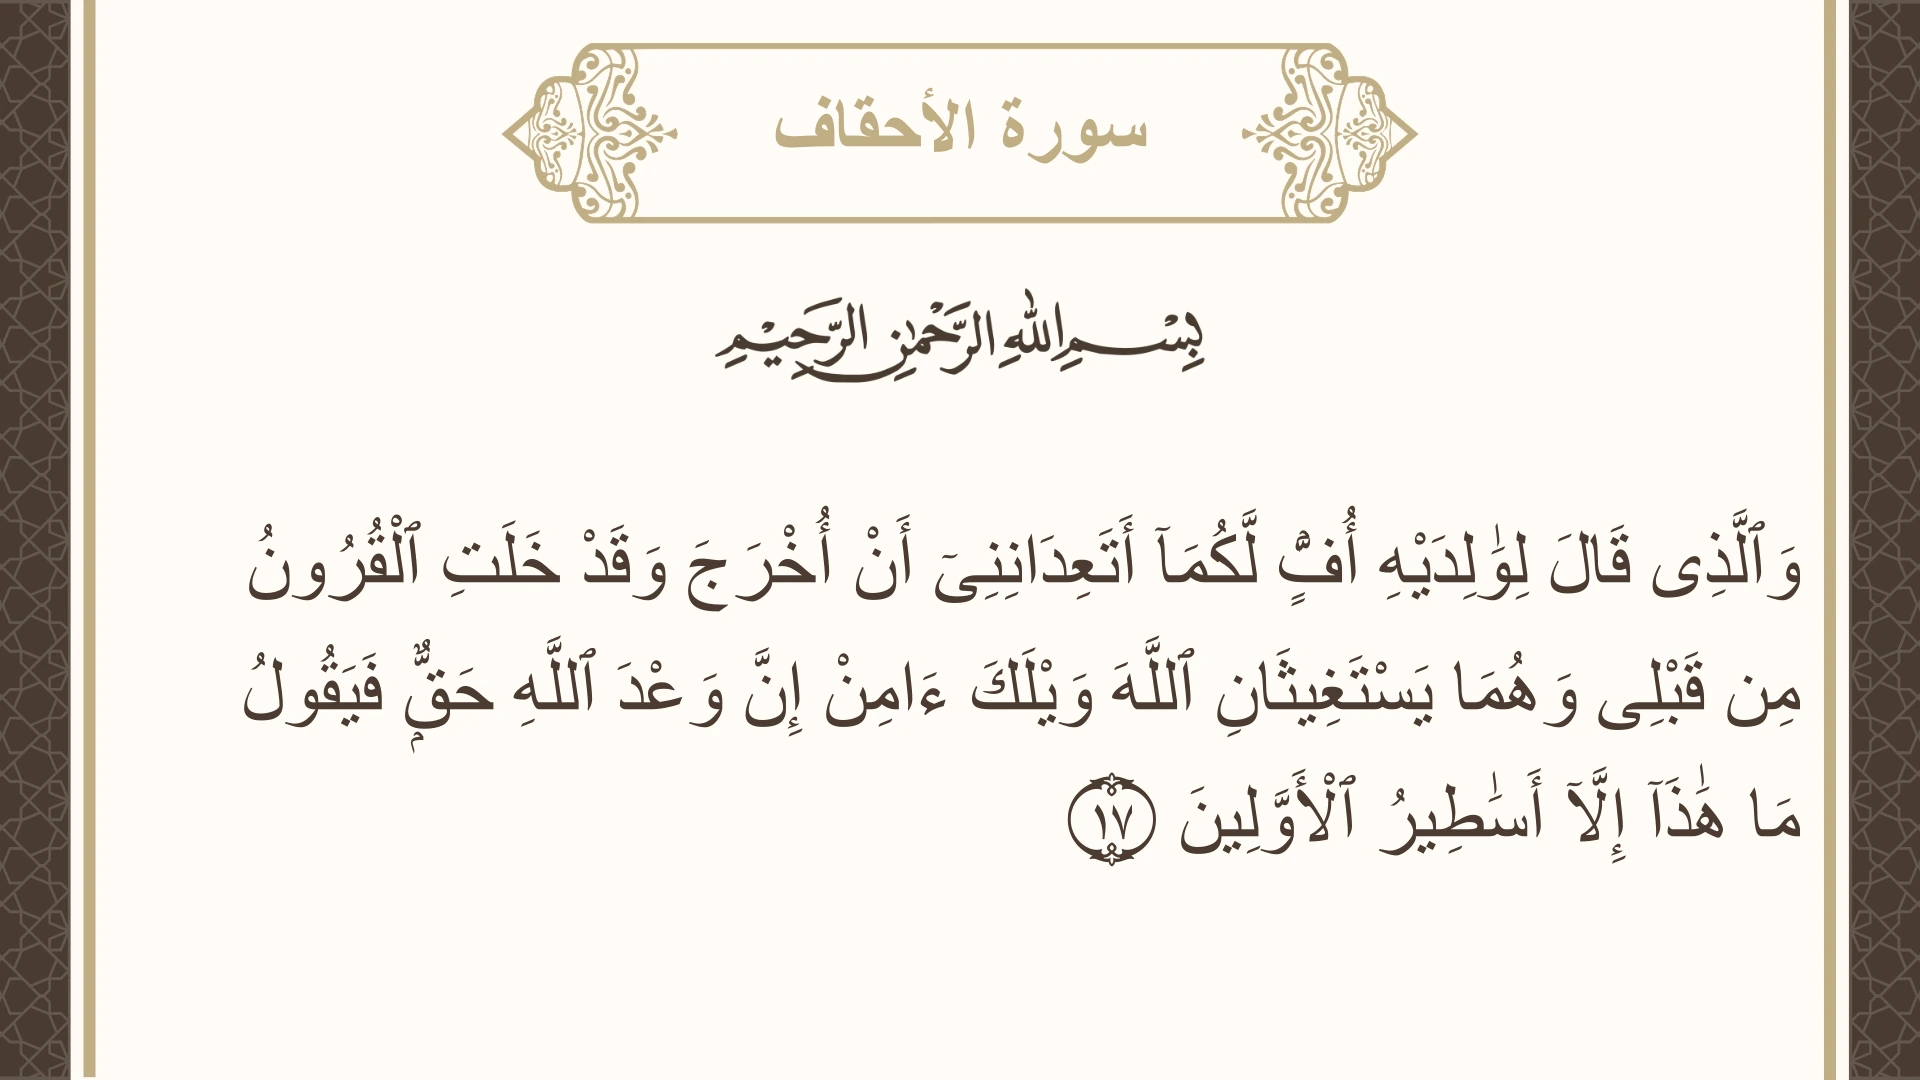 سورة الأحقاف
بِسْمِ اللهِ الرَّحْمٰنِ الرَّحِيْمِ
وَٱلَّذِى قَالَ لِوَٰلِدَيْهِ أُفٍّۢ لَّكُمَآ أَتَعِدَانِنِىٓ أَنْ أُخْرَجَ وَقَدْ خَلَتِ ٱلْقُرُونُ
مِن قَبْلِى وَهُمَا يَسْتَغِيثَانِ ٱللَّهَ وَيْلَكَ ءَامِنْ إِنَّ وَعْدَ ٱللَّهِ حَقٌّۭ فَيَقُولُ
مَا هَٰذَآ إِلَّآ أَسَٰطِيرُ ٱلْأَوَّلِينَ ١٧